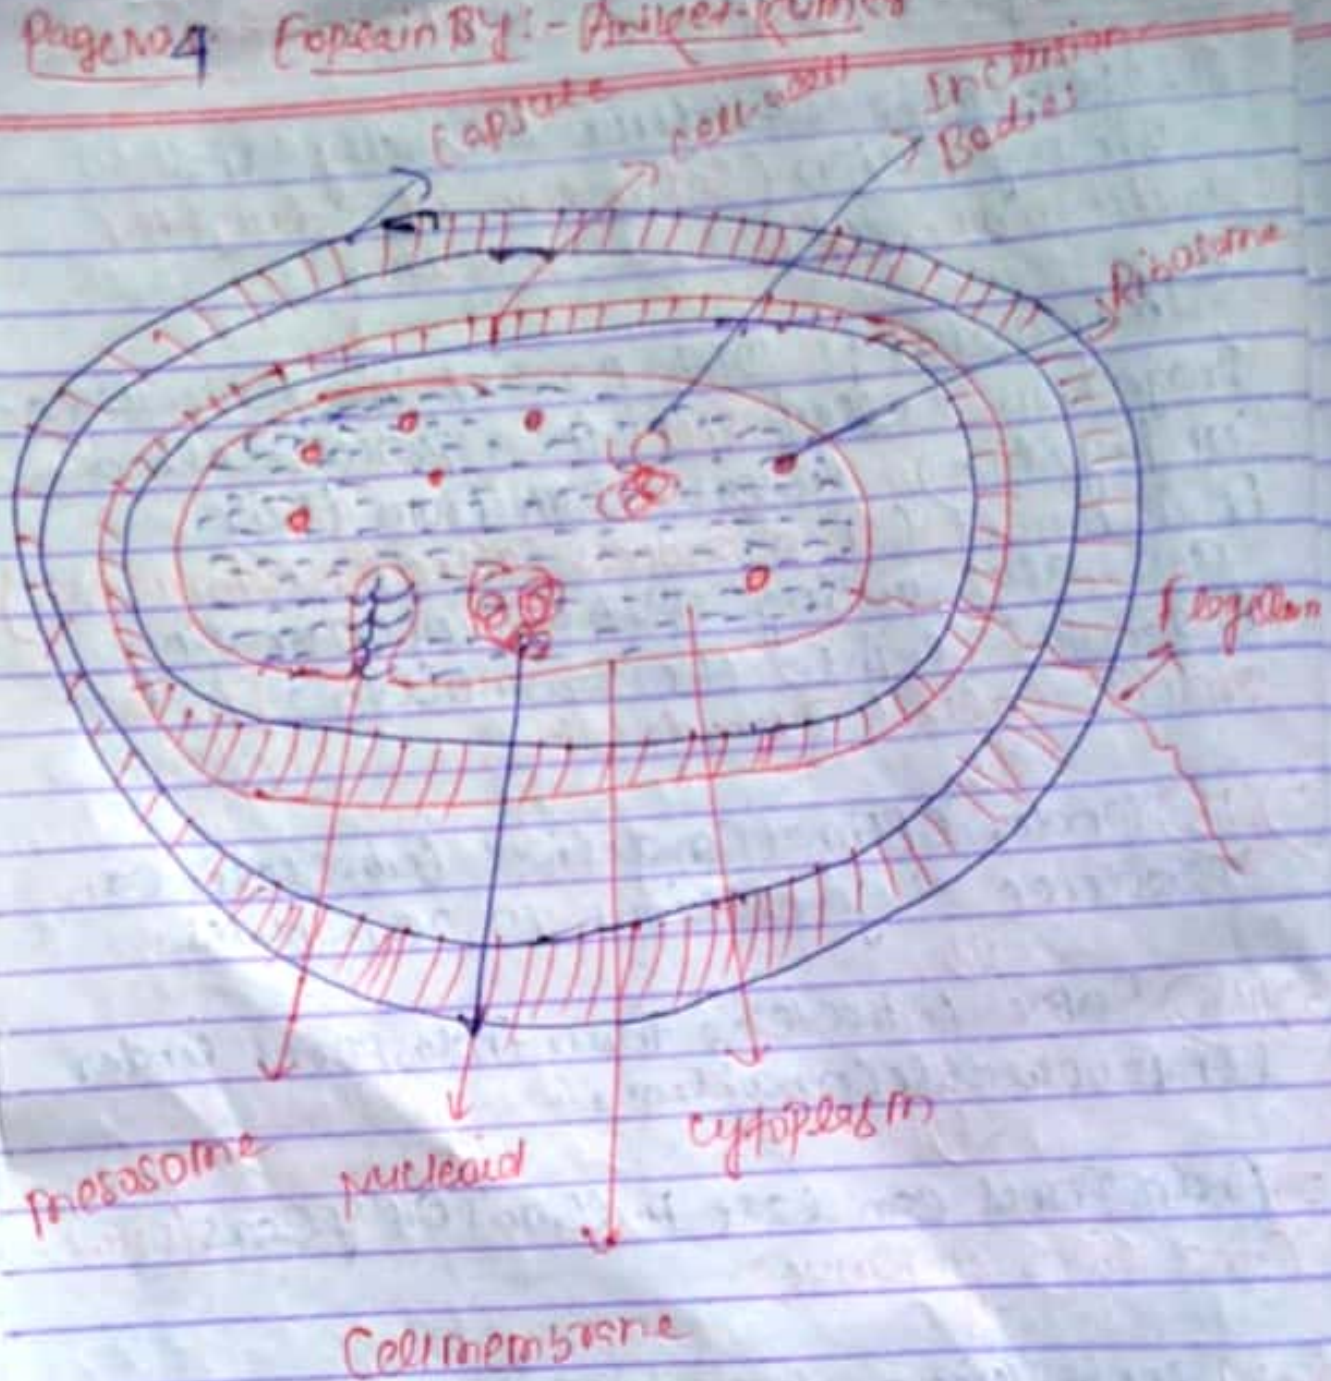 Page no 4 Explain By:-
Capsule
cell-wall
Inclusion
Bodies
Ribosome
Flagellum
Mesosome
Nucleoid
Cytoplasm
Cell membrane